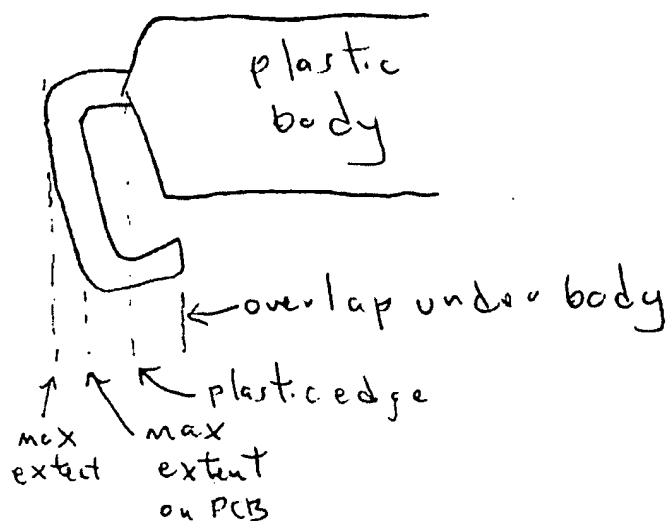 plastic
body
overlap under body
plastic edge
max
extect
max
extent
on PCB